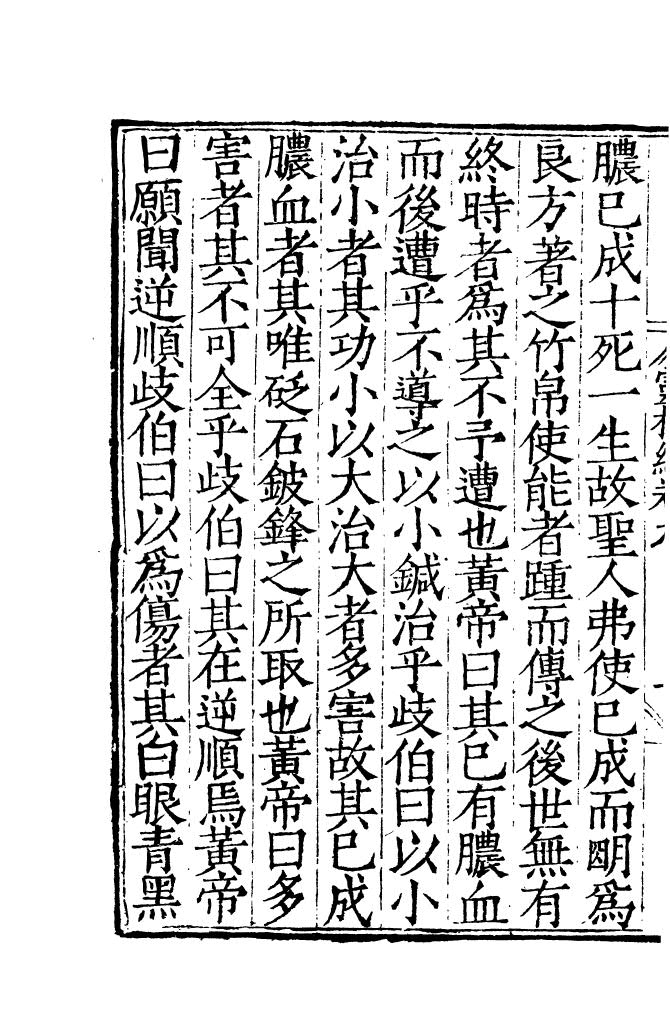 膿已成十死一生故聖人弗使已成而明爲
良方著之竹帛使能者踵而傳之後世無有
終時者爲其不予遭也黃帝曰其已有膿血
而後遭乎不導之以小鍼治乎歧伯曰以小
治小者其功小以大治大者多害故其已成
膿血者其唯砭石鈹鋒之所取也黃帝曰多
害者其不可全乎歧伯曰其在逆順焉黃帝
曰願聞逆順歧伯曰以爲傷者其白眼青黑